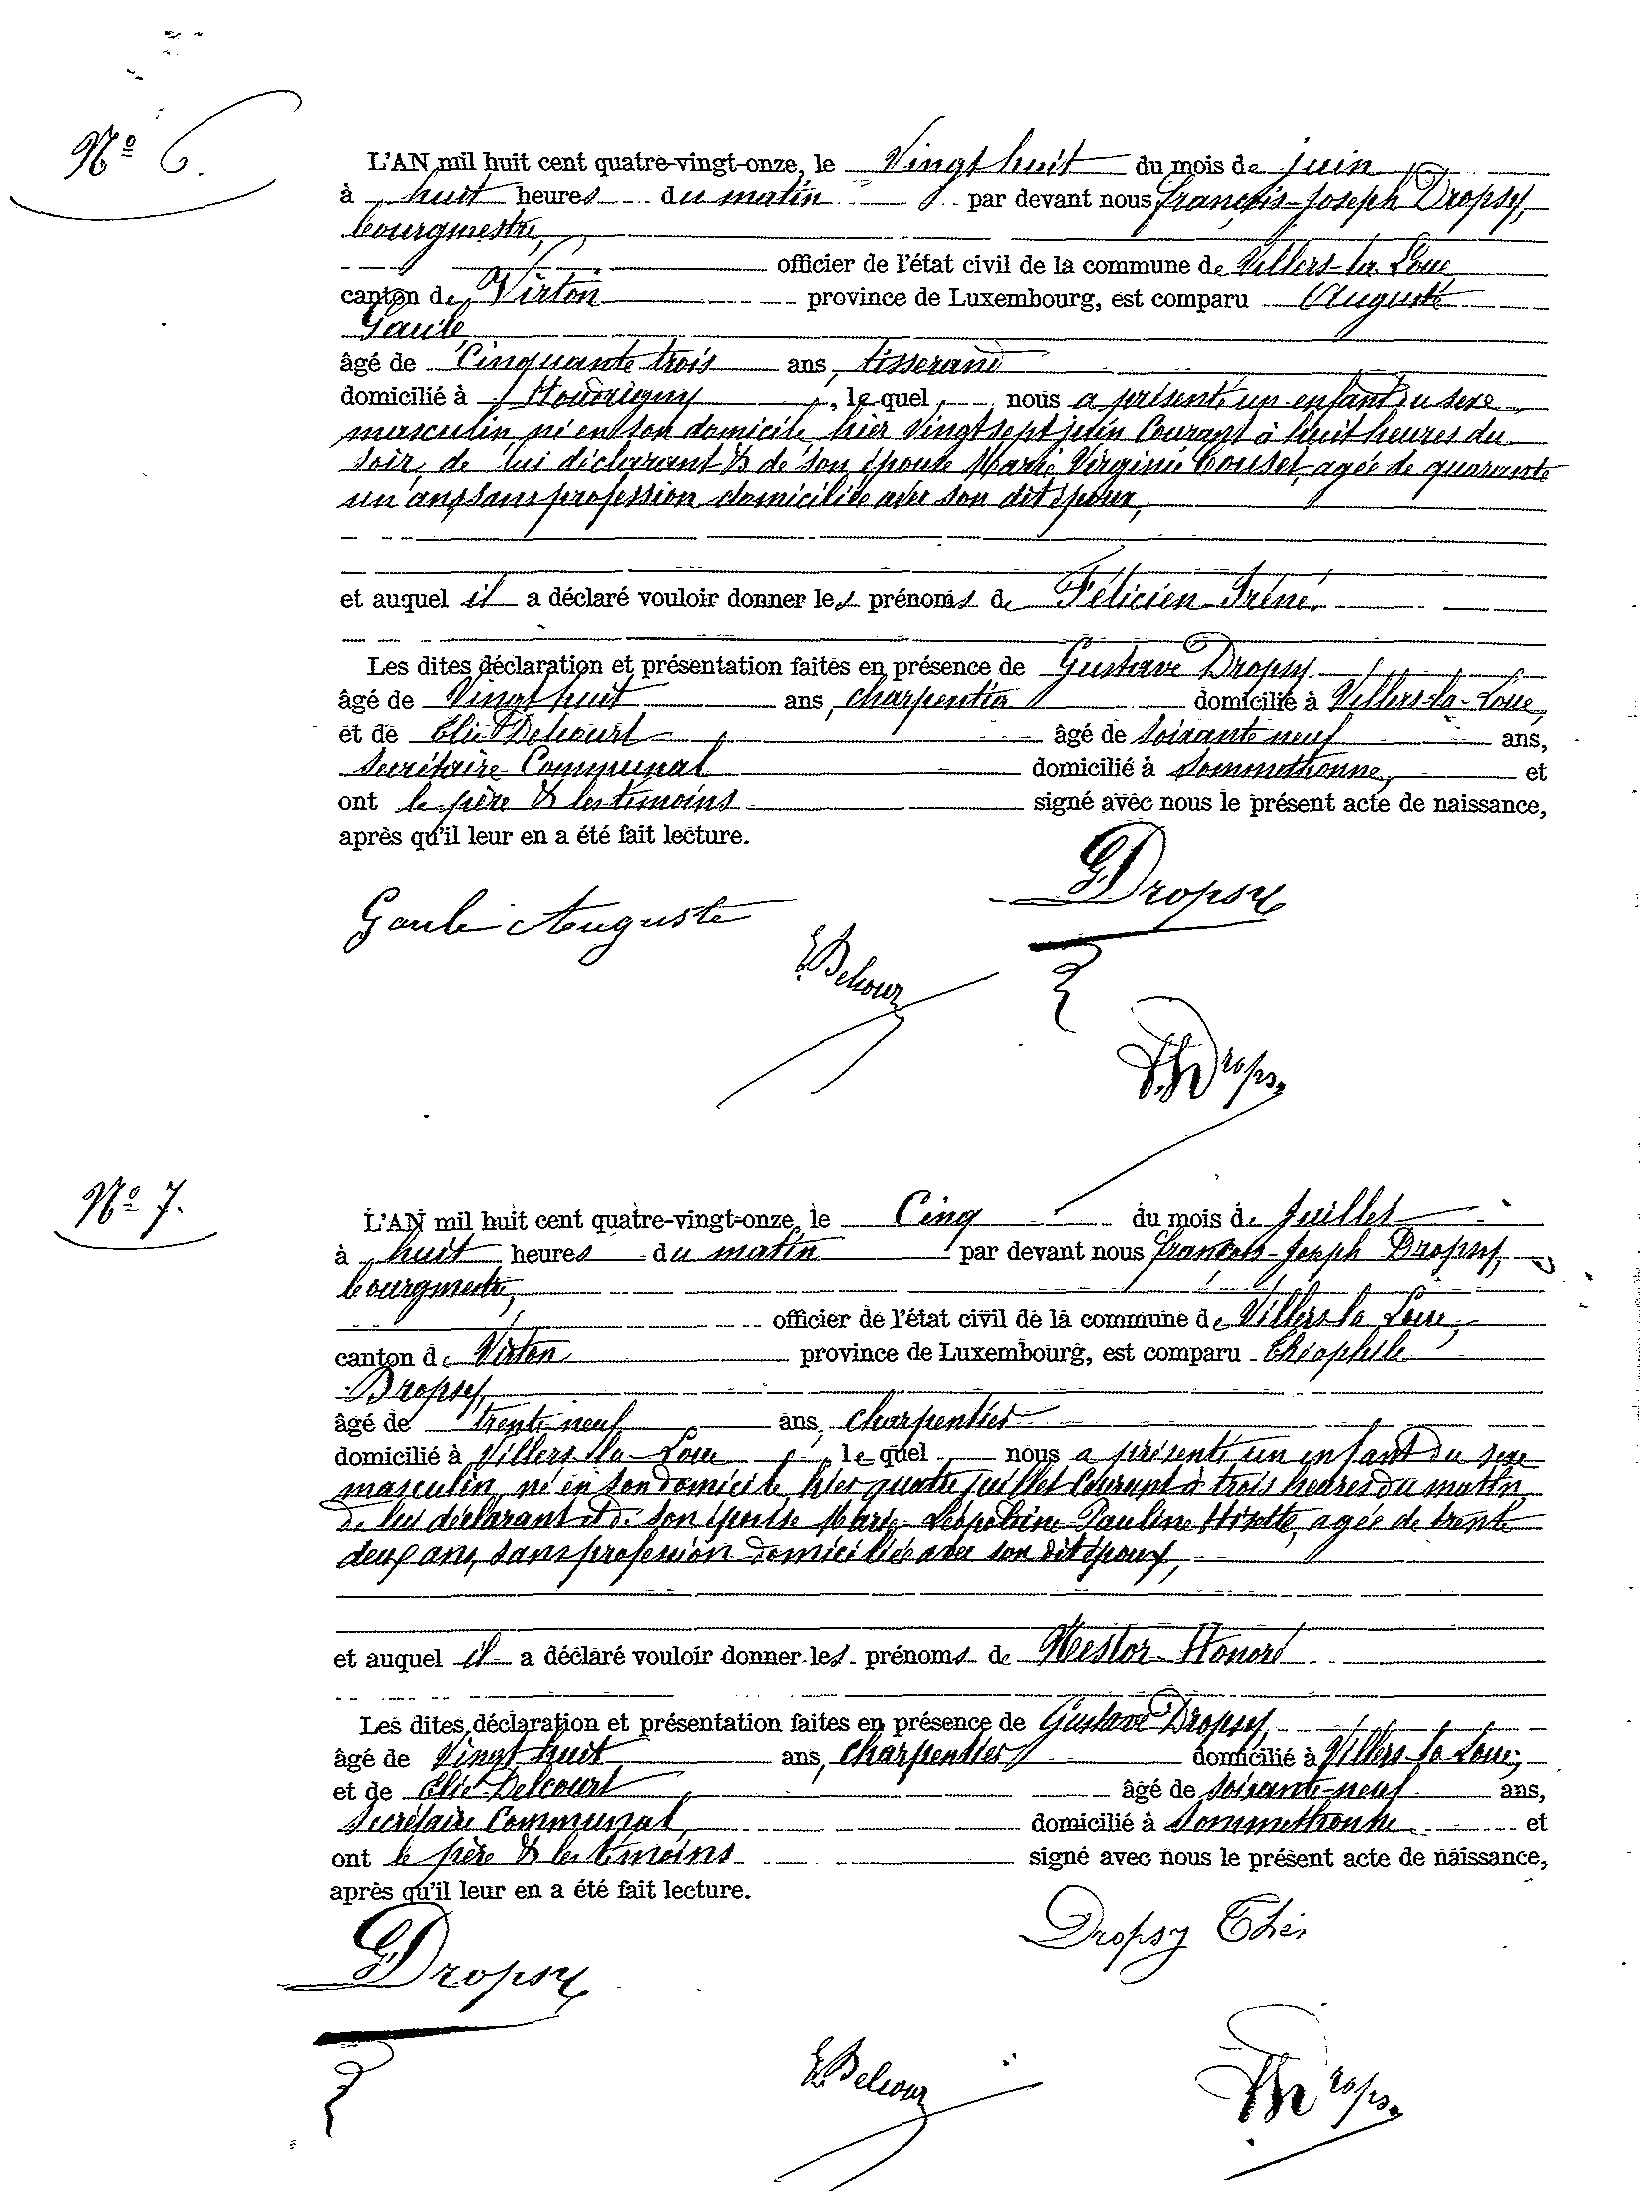 Nº 6.
L'AN mil huit cent quatre-vingt-onze, le Vingt huit du mois de juin
à huit heures du matin par devant nous françois-Joseph Dropsy,
bourgmestre,
officier de l'état civil de la commune de Villers-la Loue
canton de Virton province de Luxembourg, est comparu Auguste
Gaule
âgé de Cinquante trois ans, tisserand
domicilié à Houdrigny, le quel nous a présenté un enfant du sexe
masculin né en son domicile hier vingt sept juin Courant à huit heures du
soir, de lui déclarant & de son épouse Marie Virginie Couset, agée de quarante
un ans, sans profession domiciliée avec son dit époux,
et auquel il a déclaré vouloir donner les prénoms de Félicien Iréné.
Les dites déclaration et présentation faites en présence de Gustave Dropsy
âgé de Vingt huit ans, charpentier domicilié à Villers-la-Loue,
et de Elie Delcourt âgé de soixante neuf ans,
Secrétaire Communal domicilié à Sommethonne, et
ont le père & les témoins signé avec nous le présent acte de naissance,
après qu'il leur en a été fait lecture.
GDropsy
Gaule Auguste
E.Delcour
Dropsy
Nº 7.
L'AN mil huit cent quatre-vingt-onze, le Cinq du mois de Juillet
à huit heures du matin par devant nous françois-Joseph Dropsy,
bourgmestre,
officier de l'état civil de la commune de Villers-la Loue,
canton de Virton province de Luxembourg, est comparu Théophile
Dropsy,
âgé de trente neuf ans, charpentier
domicilié à Villers-la-Loue, le quel nous a présenté un enfant du sexe
masculin, né en son domicile hier quatre juillet Courant à trois heures du matin
de lui déclarant et de son épouse Marie Léopoldine Pauline Hizette, agée de trente
deux ans, sans profession domiciliée avec son dit époux,
et auquel il a déclaré vouloir donner les prénoms de Nestor Honoré
Les dites déclaration et présentation faites en présence de Gustave Dropsy,
âgé de Vingt huit ans, charpentier domicilié à Villers-la Loue,
et de Elie Delcourt âgé de soixante-neuf ans,
Secrétaire Communal, domicilié à Sommethonne et
ont le père & les témoins signé avec nous le présent acte de naissance,
après qu'il leur en a été fait lecture.
Dropsy Théo
GDropsy
E.Delcour
Dropsy